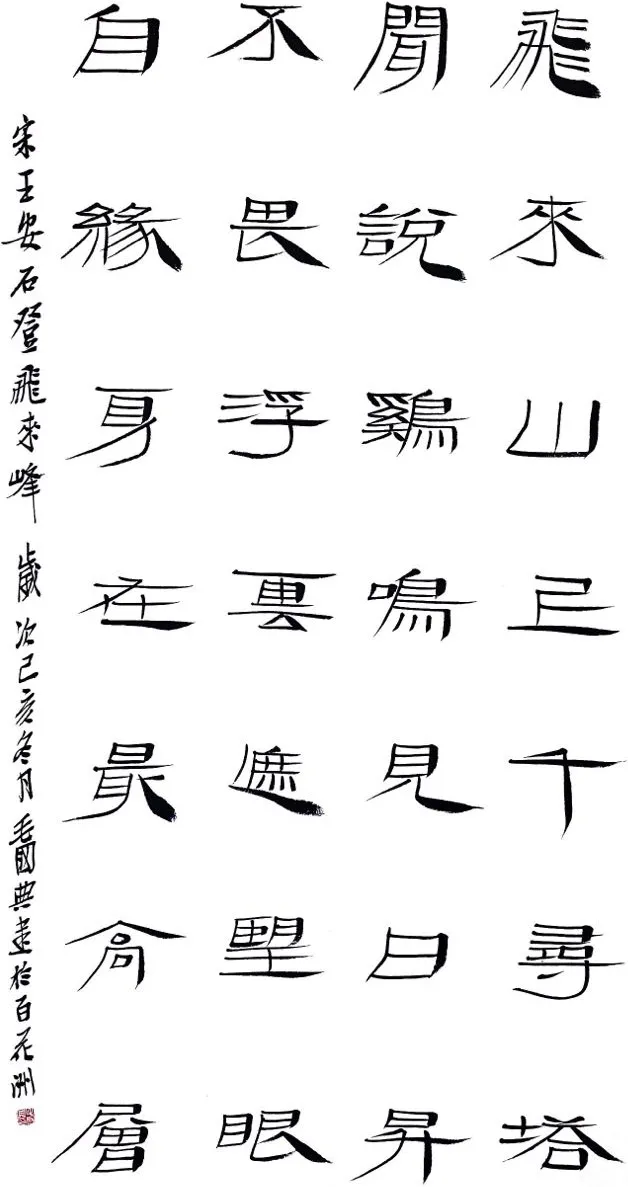 飛來山上千尋塔
聞說鷄鳴見日昇
不畏浮雲遮望眼
自緣身在最高層
宋王安石登飛來峰 歲次己亥冬月 毛國典書於百花洲